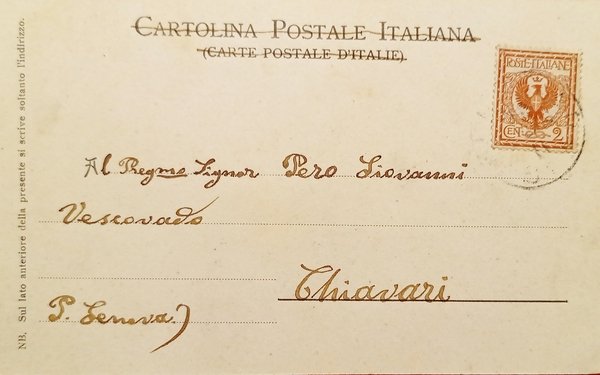 CARTOLINA POSTALE ITALIANA
(CARTE POSTALE D'ITALIE)
POSTE·ITALIANE
CEN. 2
Al Pregmo Signor Pero Giovanni
Vescovado
Chiavari
P. Genova)
NB. Sul lato anteriore della presente si scrive soltanto l'indirizzo.